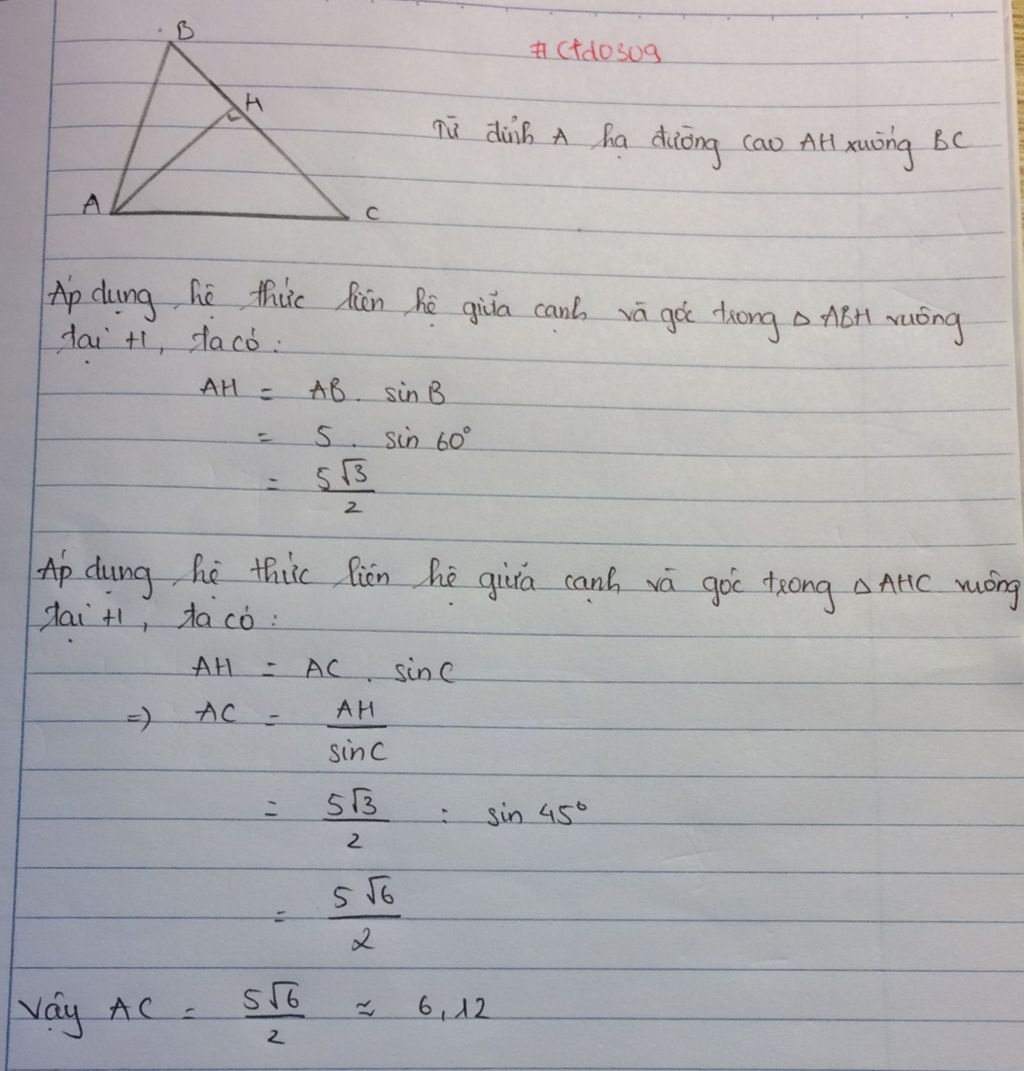 B
#Ctd0309
H
Từ đỉnh A hạ đường cao AH xuống BC
A
C
Áp dụng hệ thức liên hệ giữa cạnh và góc trong △ ABH vuông
tại H, ta có:
AH = AB . sin B
= 5 . sin 60°
= 5√3/2
Áp dụng hệ thức liên hệ giữa cạnh và góc trong △ AHC vuông
tại H, ta có:
AH = AC . sin C
=> AC = AH/sin C
= 5√3/2 : sin 45°
= 5√6/2
Vậy AC = 5√6/2 ≈ 6,12